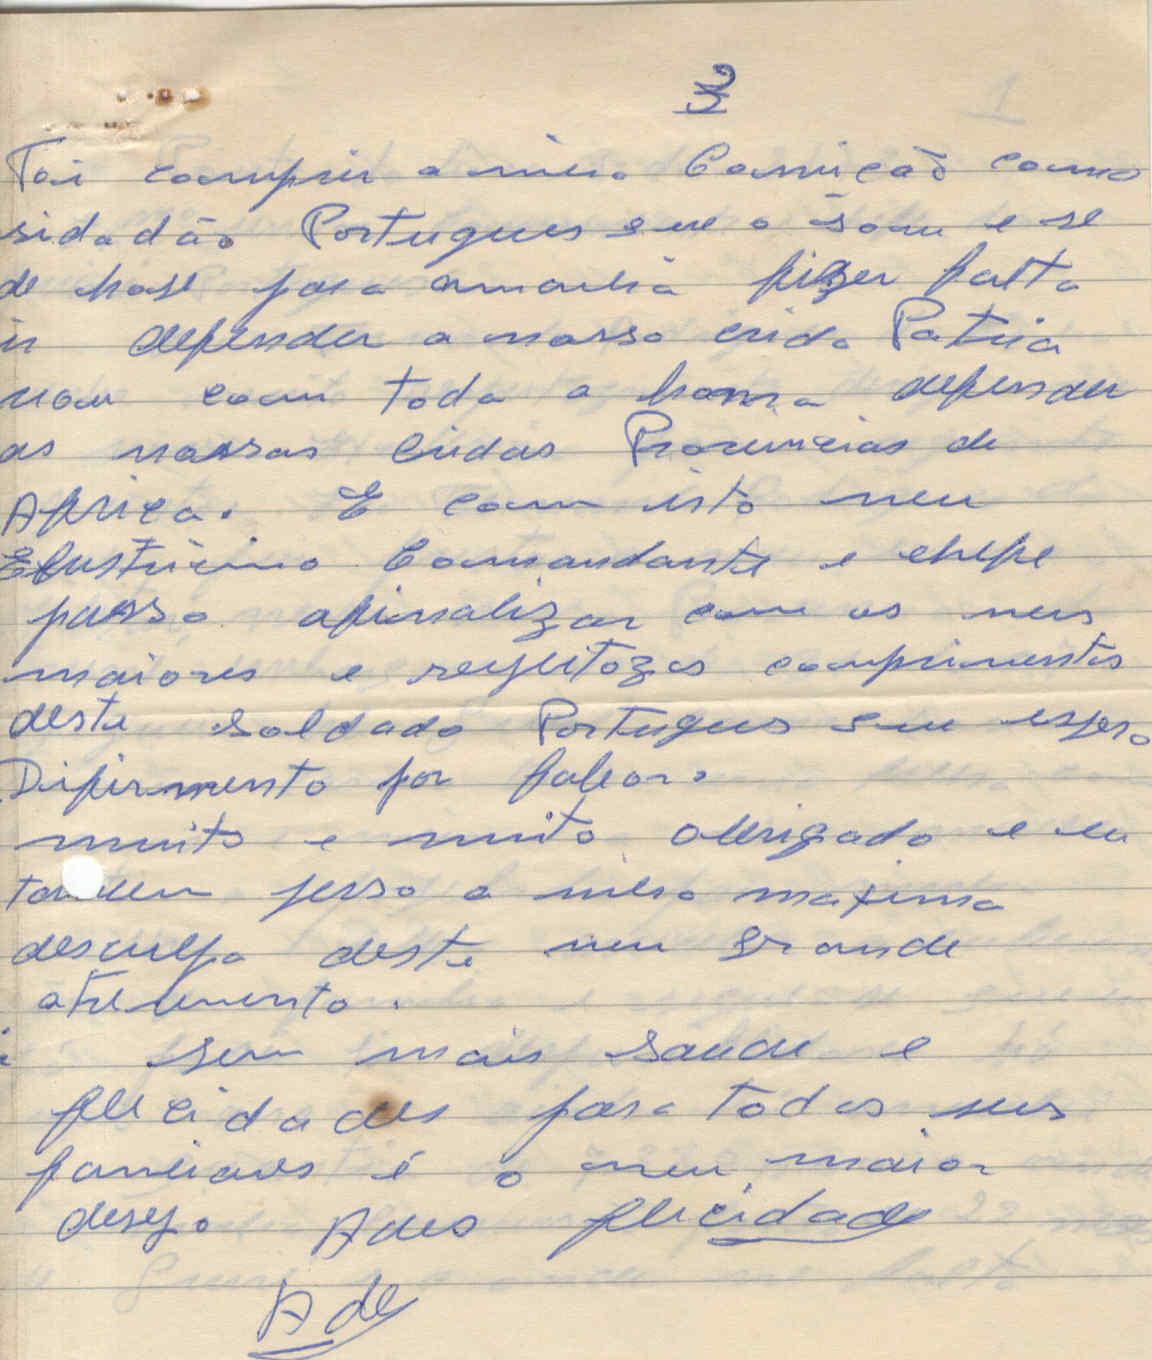 3
Foi comprir a minha Comição como
sidadão Portugues que o sou e se
de hoje para amanhã fizer falta
ir defender a nossa crida Patria
vou com toda a honra defender
as nossas cridas Provincias de
Africa. E com isto meu
Comandante e chefe
passo afinalizar com os meus
maiores e respeitozos comprimentos
deste soldado Portugues que espera
Difirmento por fabor.
muito e muito obrigado e eu
tambem pesso a minha maxima
desculpa deste meu grande
atrevimento.
sem mais saude e
felicidades para todos seus
familiares é o meu maior
desejo Adeus felicidades
Ade